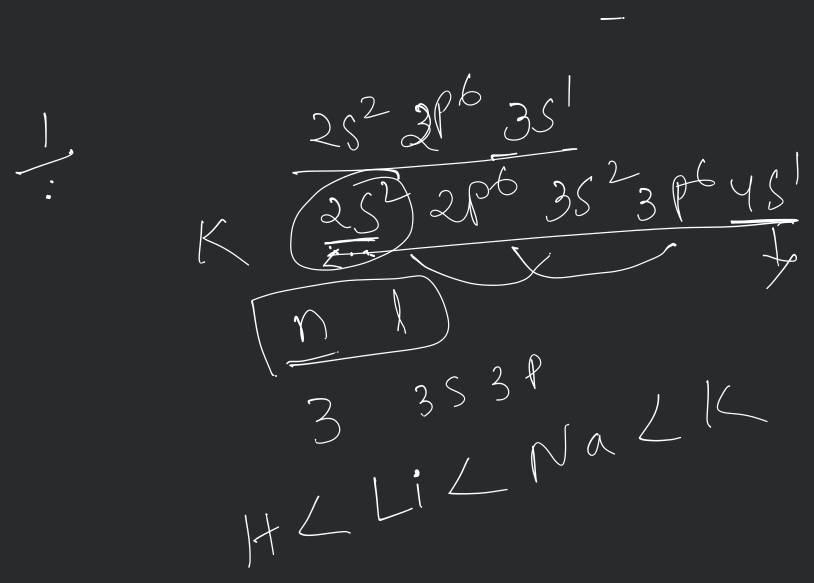 2s² 2p⁶ 3s¹
1
K 2s² 2p⁶ 3s² 3p⁶ 4s¹
n l
3 3s 3p
H < Li < Na < K